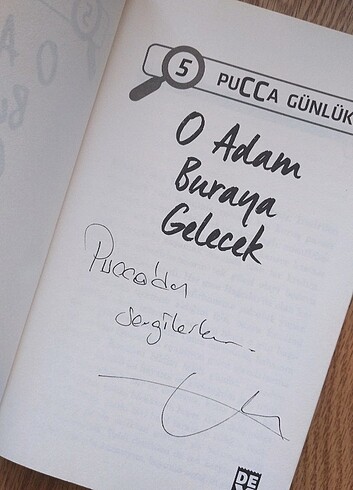 5
PUCCA GÜNLÜK
O Adam
Buraya
Gelecek
Pucca'dan
sevgilerle
DE